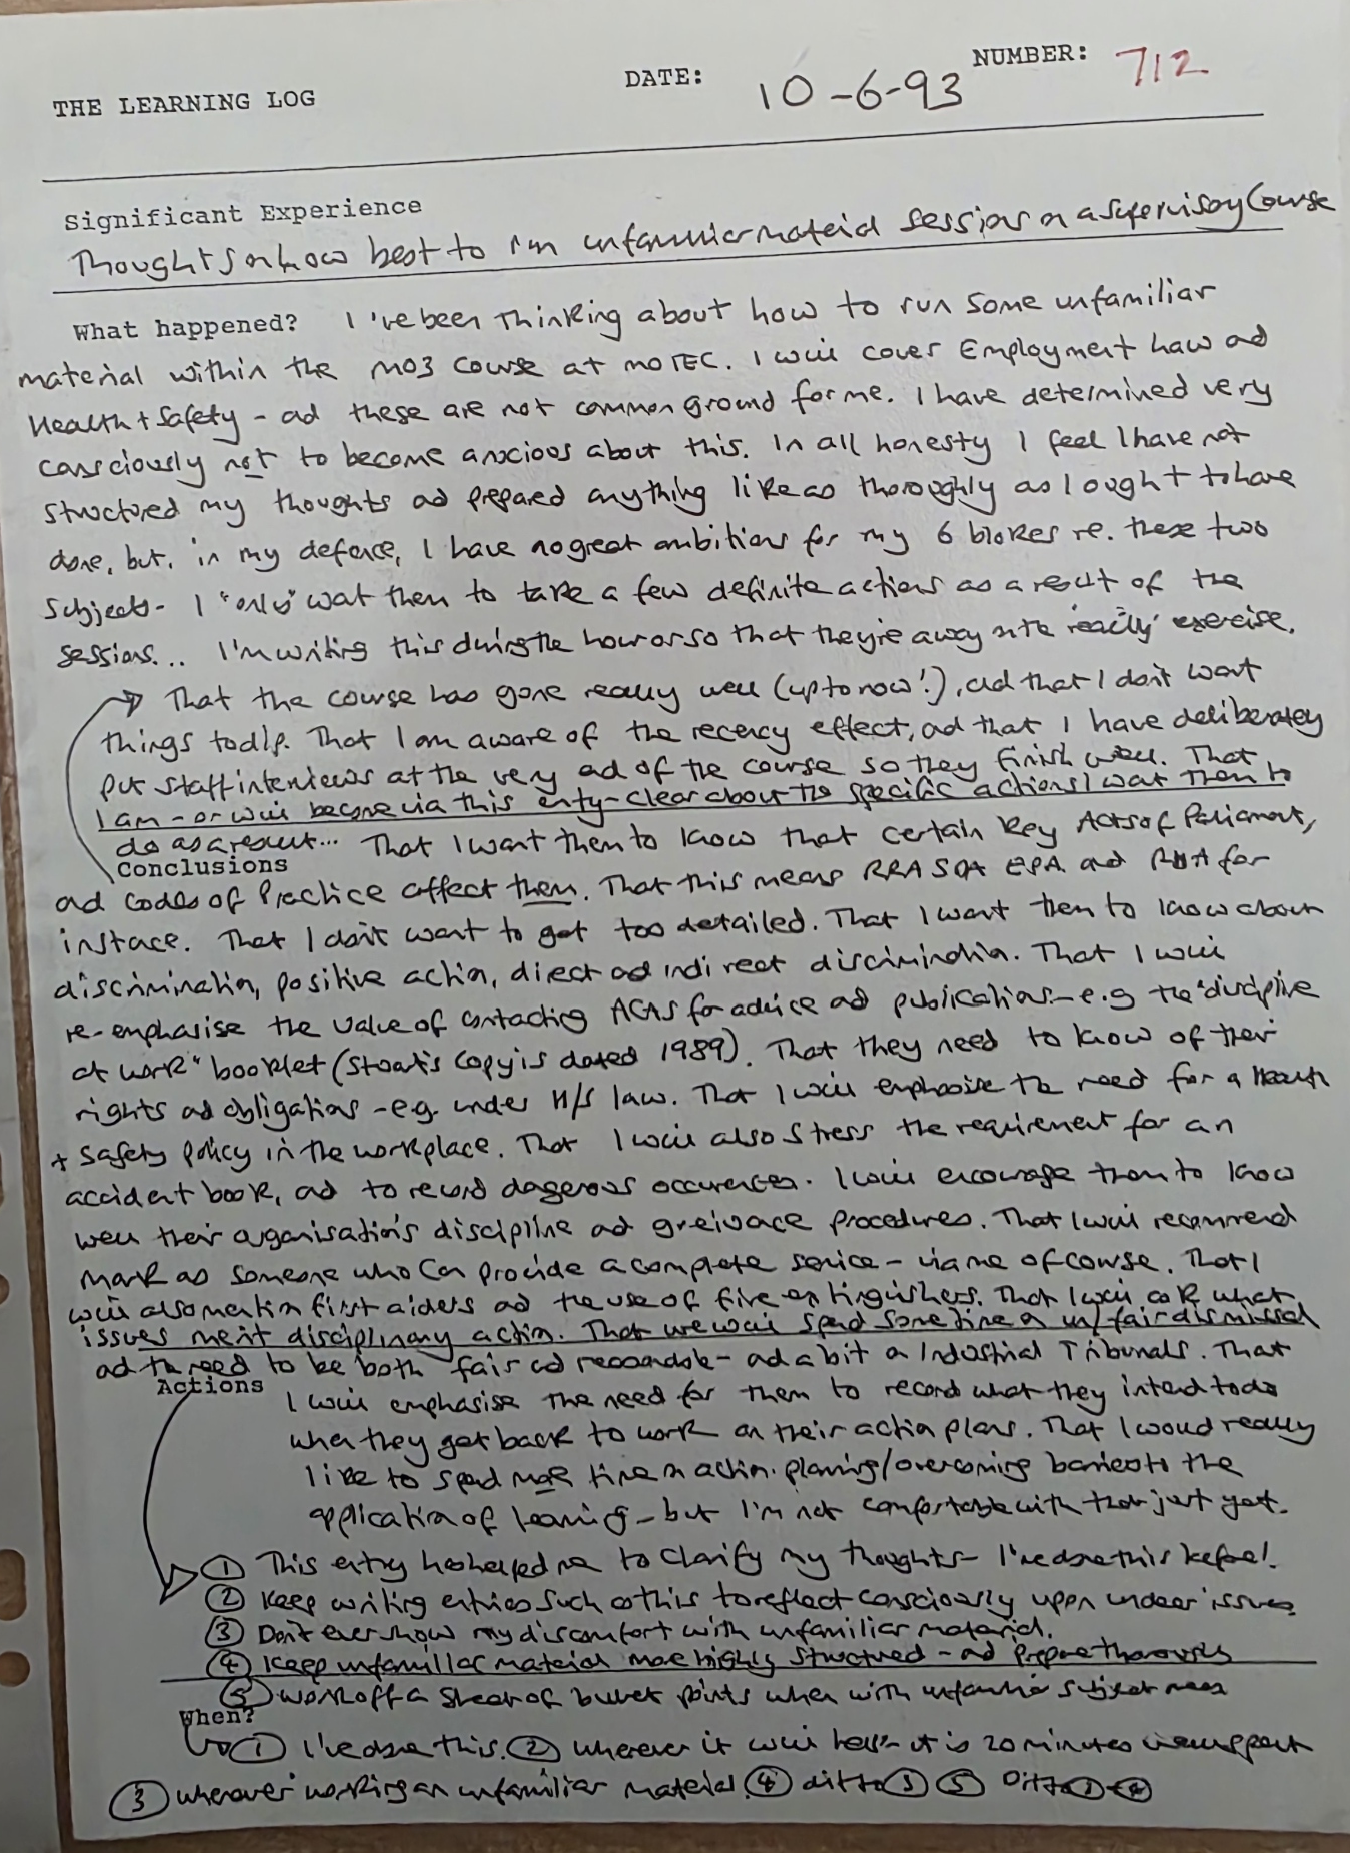 THE LEARNING LOG DATE: 10-6-93 NUMBER: 712
Significant Experience
Thoughts on how best to run unfamiliar material sessions on a supervisory Course
What happened? I've been thinking about how to run some unfamiliar
material within the MO3 course at MOTEC. I will cover Employment Law ad
Health + Safety - ad these are not common ground for me. I have determined very
consciously not to become anxious about this. In all honesty I feel I have not
structured my thoughts ad prepared anything like as thoroughly as I ought to have
done, but, in my defence, I have no great ambitions for my 6 blokes re. these two
subjects - I "only" want them to take a few definite actions as a result of the
sessions... I'm writing this during the hour or so that they're away on the exercise.
That the course has gone really well (up to now!), ad that I don't want
things to dip. That I am aware of the recency effect, ad that I have deliberately
put staff interviews at the very end of the course so they finish well. That
I am - or will become via this entry - clear about the specific actions I want them to
do as a result... That I want them to know that certain key Acts of Parliament,
Conclusions
ad Codes of Practice affect them. That this means RRA SDA EPA and for
instance. That I don't want to get too detailed. That I want them to know about
discrimination, positive action, direct ad indirect discrimination. That I will
re-emphasise the value of contacting ACAS for advice ad publications - e.g the "discipline
at work" booklet (Stuart's copy is dated 1989). That they need to know of their
rights ad obligations - e.g. under H/S law. That I will emphasise the need for a Health
+ Safety policy in the workplace. That I will also stress the requirement for an
accident book, ad to record dangerous occurences. I will encourage them to know
well their organisation's discipline ad greivance procedures. That I will recommend
Mark as someone who can provide a complete service - via me of course. That I
will also mention first aiders ad the use of fire extinguishers. That I will ask what
issues merit disciplinary action. That we will spend some time on un/fair dismissal
ad the need to be both fair ad reasonable - ad a bit on Industrial Tribunals. That
Actions
I will emphasise the need for them to record what they intend to do
when they get back to work on their action plans. That I would really
like to spend more time on action planning/overcoming barriers to the
application of learning - but I'm not comfortable with that just yet.
① This entry has helped me to clarify my thoughts - I've done this before!
② Keep writing entries such as this to reflect consciously upon issues
③ Don't ever show my discomfort with unfamiliar material.
④ Keep unfamiliar material more highly structured - ad prepare thoroughly
⑤ Work off a sheet of bullet points when with unfamiliar subject
When?
① I've done this. ② Whenever it will help - it is 20 minutes
③ Whenever working on unfamiliar material. ④ ditto ③ ⑤ Ditto ③ + ④